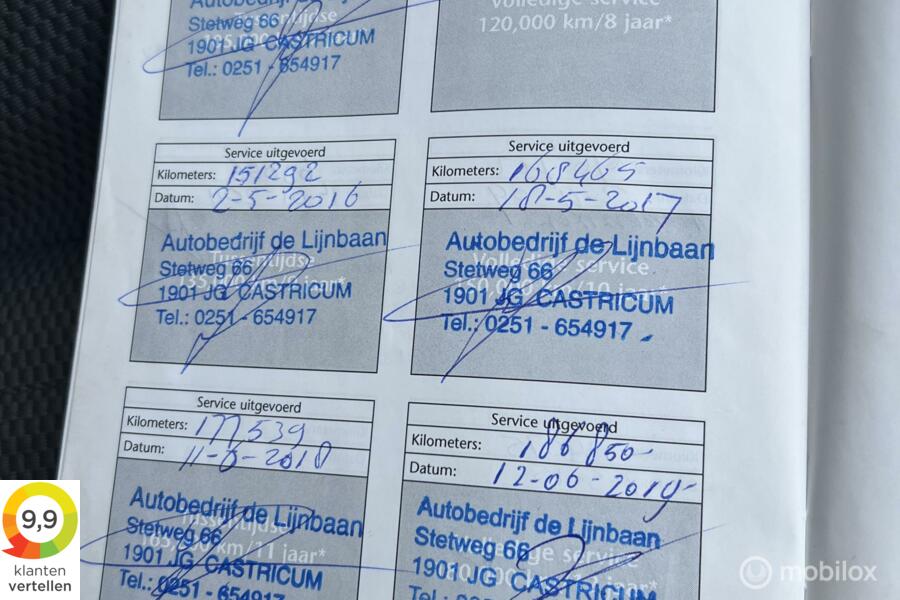 Autobedrijf
Stetweg 66
1901 JG CASTRICUM
Tel.: 0251 - 654917
Volledige service
120,000 km/8 jaar*
Service uitgevoerd
Kilometers: 151292
Datum: 2-5-2016
Autobedrijf de Lijnbaan
Tussentijdse
Stetweg 66
135,000 km/9 jaar*
1901 JG CASTRICUM
Tel.: 0251 - 654917
Service uitgevoerd
Kilometers: 168465
Datum: 18-5-2017
Autobedrijf de Lijnbaan
Volledige service
Stetweg 66
150,000 km/10 jaar*
1901 JG CASTRICUM
Tel.: 0251 - 654917
Service uitgevoerd
Kilometers: 177539
Datum: 11-6-2018
Autobedrijf de Lijnbaan
Tussentijdse
Stetweg 66
165,000 km/11 jaar*
1901 JG CASTRICUM
Tel.: 0251 - 654917
Service uitgevoerd
Kilometers: 186850-
Datum: 12-06-2019-
Autobedrijf de Lijnbaan
Stetweg 66
Volledige service
1901 JG CASTRICUM
9,9
klanten
vertellen
mobilox